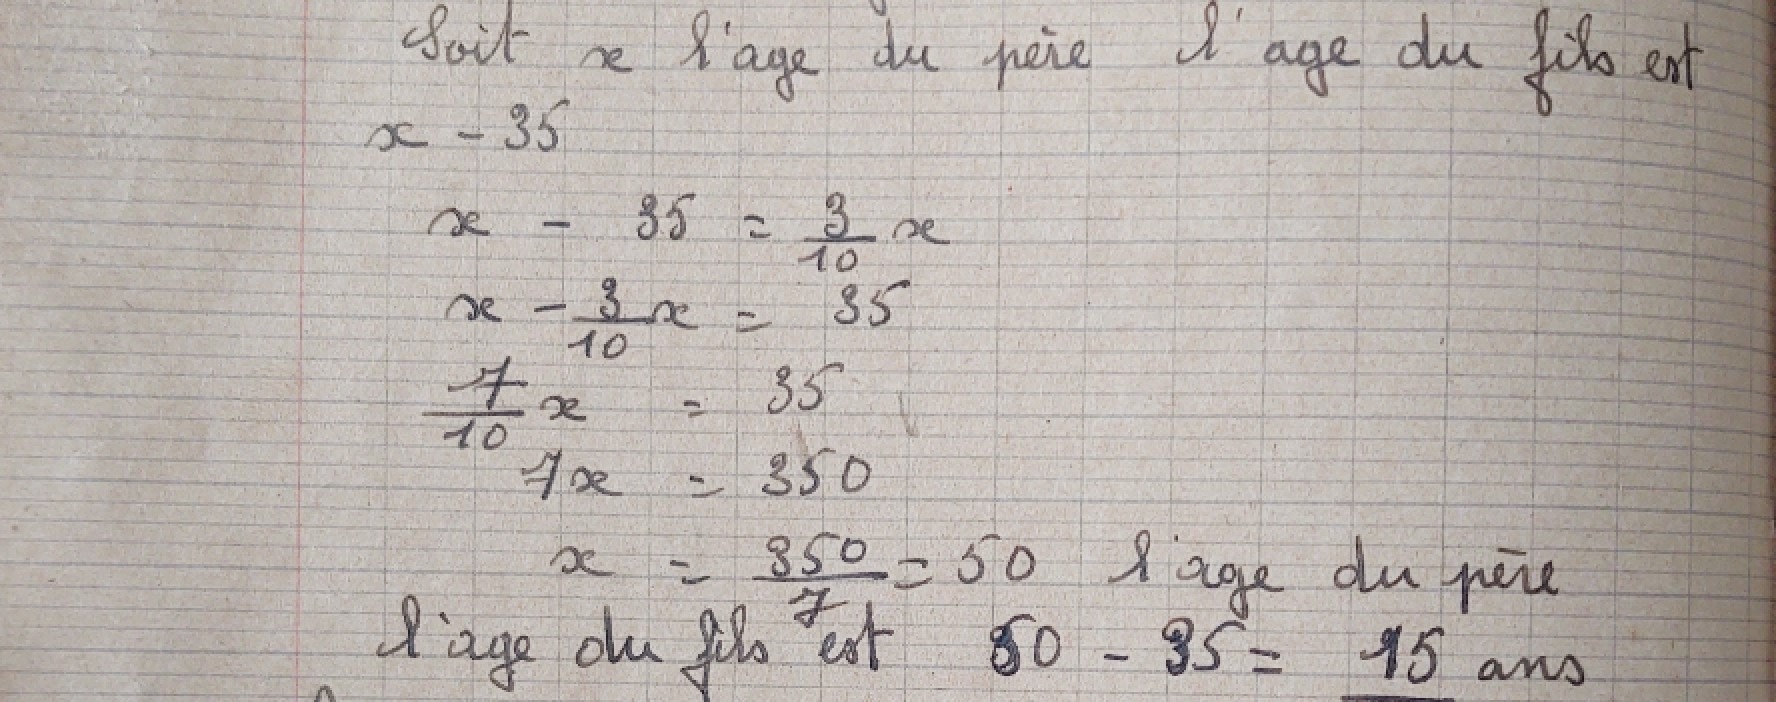 Soit x l'age du père l'age du fils est
x - 35
x - 35 = 3/10 x
x - 3/10 x = 35
7/10 x = 35
7x = 350
x = 350/7 = 50 l'age du père
l'age du fils est 50 - 35 = 15 ans